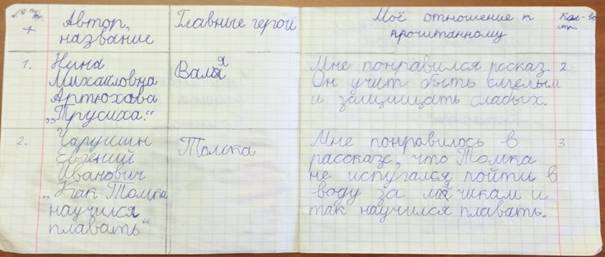 Автор, название
Главные герои
Моё отношение к прочитанному
Кол-во стр.
1.
Нина
Михайловна
Артюхова
„Трусиха."
Валя
Мне понравился рссказ.
Он учит быть смелым
и защищать слабых.
2
2.
Чарушин
Евгений
Иванович
„Как Томка
научился
плавать"
Томка
Мне понравилось в
рассказе, что Томка
не испугался пойти в
воду за мячикам и
так научился плавать.
3